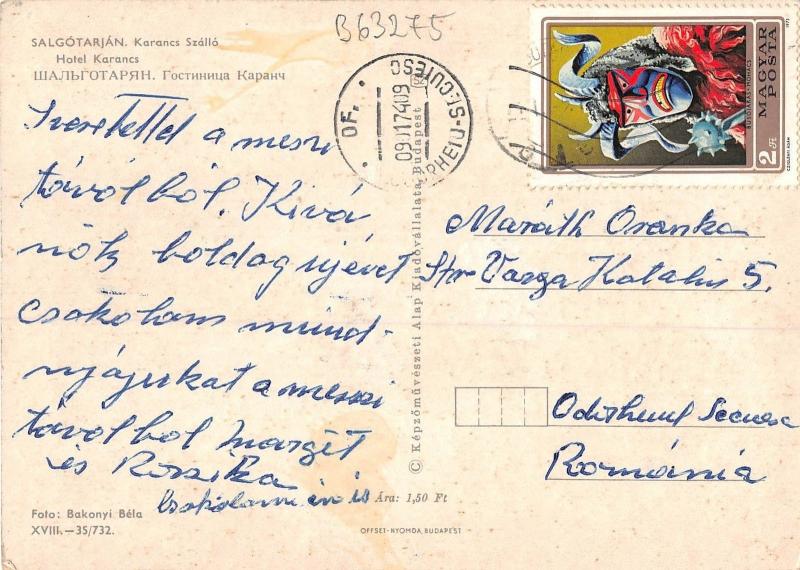 B63275
SALGÓTARJÁN. Karancs Szálló
Hotel Karancs
ШАЛЬГОТАРЯН. Гостиница Каранч
Szeretettel a messzi
távolból. Kívá
nok boldog újévet
csokolom mind-
nyájukat a messzi
távolbol Margit
és Rozika
Csokolom én is
Ára: 1,50 Ft
Foto: Bakonyi Béla
XVIII.—35/732.
OFFSET-NYOMDA, BUDAPEST
© Képzőművészeti Alap Kiadóvállalata, Budapest
OF.
09.1174.09
RPHEIU-SECUIESC
BUSÓJÁRÁS-MOHÁCS
MAGYAR
POSTA
2 Ft
1973
CZIGLÉNYI ÁDÁM
Maráth Oranka
Str Varga Katalin 5.
Odorheiul Secuesc
România